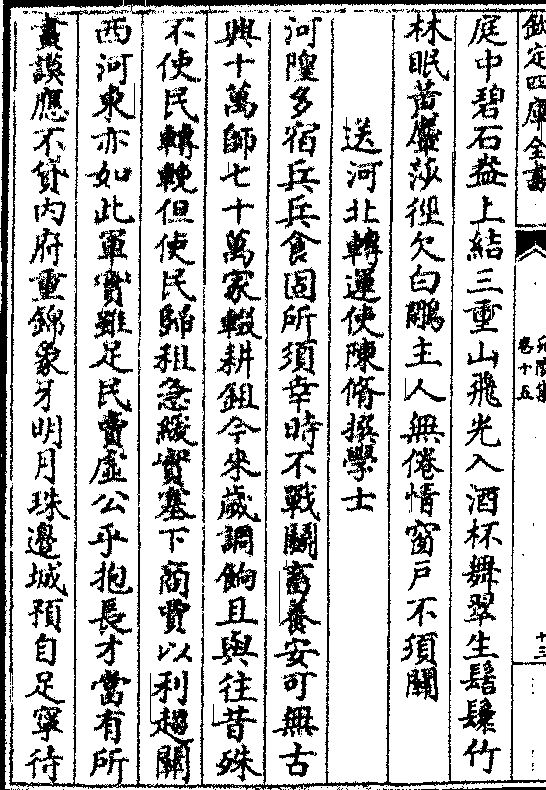 欽定四庫全書
宛陵集
卷十五
十三
庭中碧石盎上結三重山飛光入酒杯舞翠生髻鬟竹
林眠黃麞莎徑欠白鷴主人無倦情窗戶不須關
送河北轉運使陳脩撰學士
河隍多宿兵兵食固所須幸時不戰鬬畜養安可無古
興十萬師七十萬家輟耕鉏今來歲調餉且與往昔殊
不使民轉輓但使民歸租急緩實塞下商費以利趨關
西河東亦如此軍實雖足民費虛公乎抱長才當有所
畫謨應不貸内府重錦象牙明月珠邊城預自足寧待